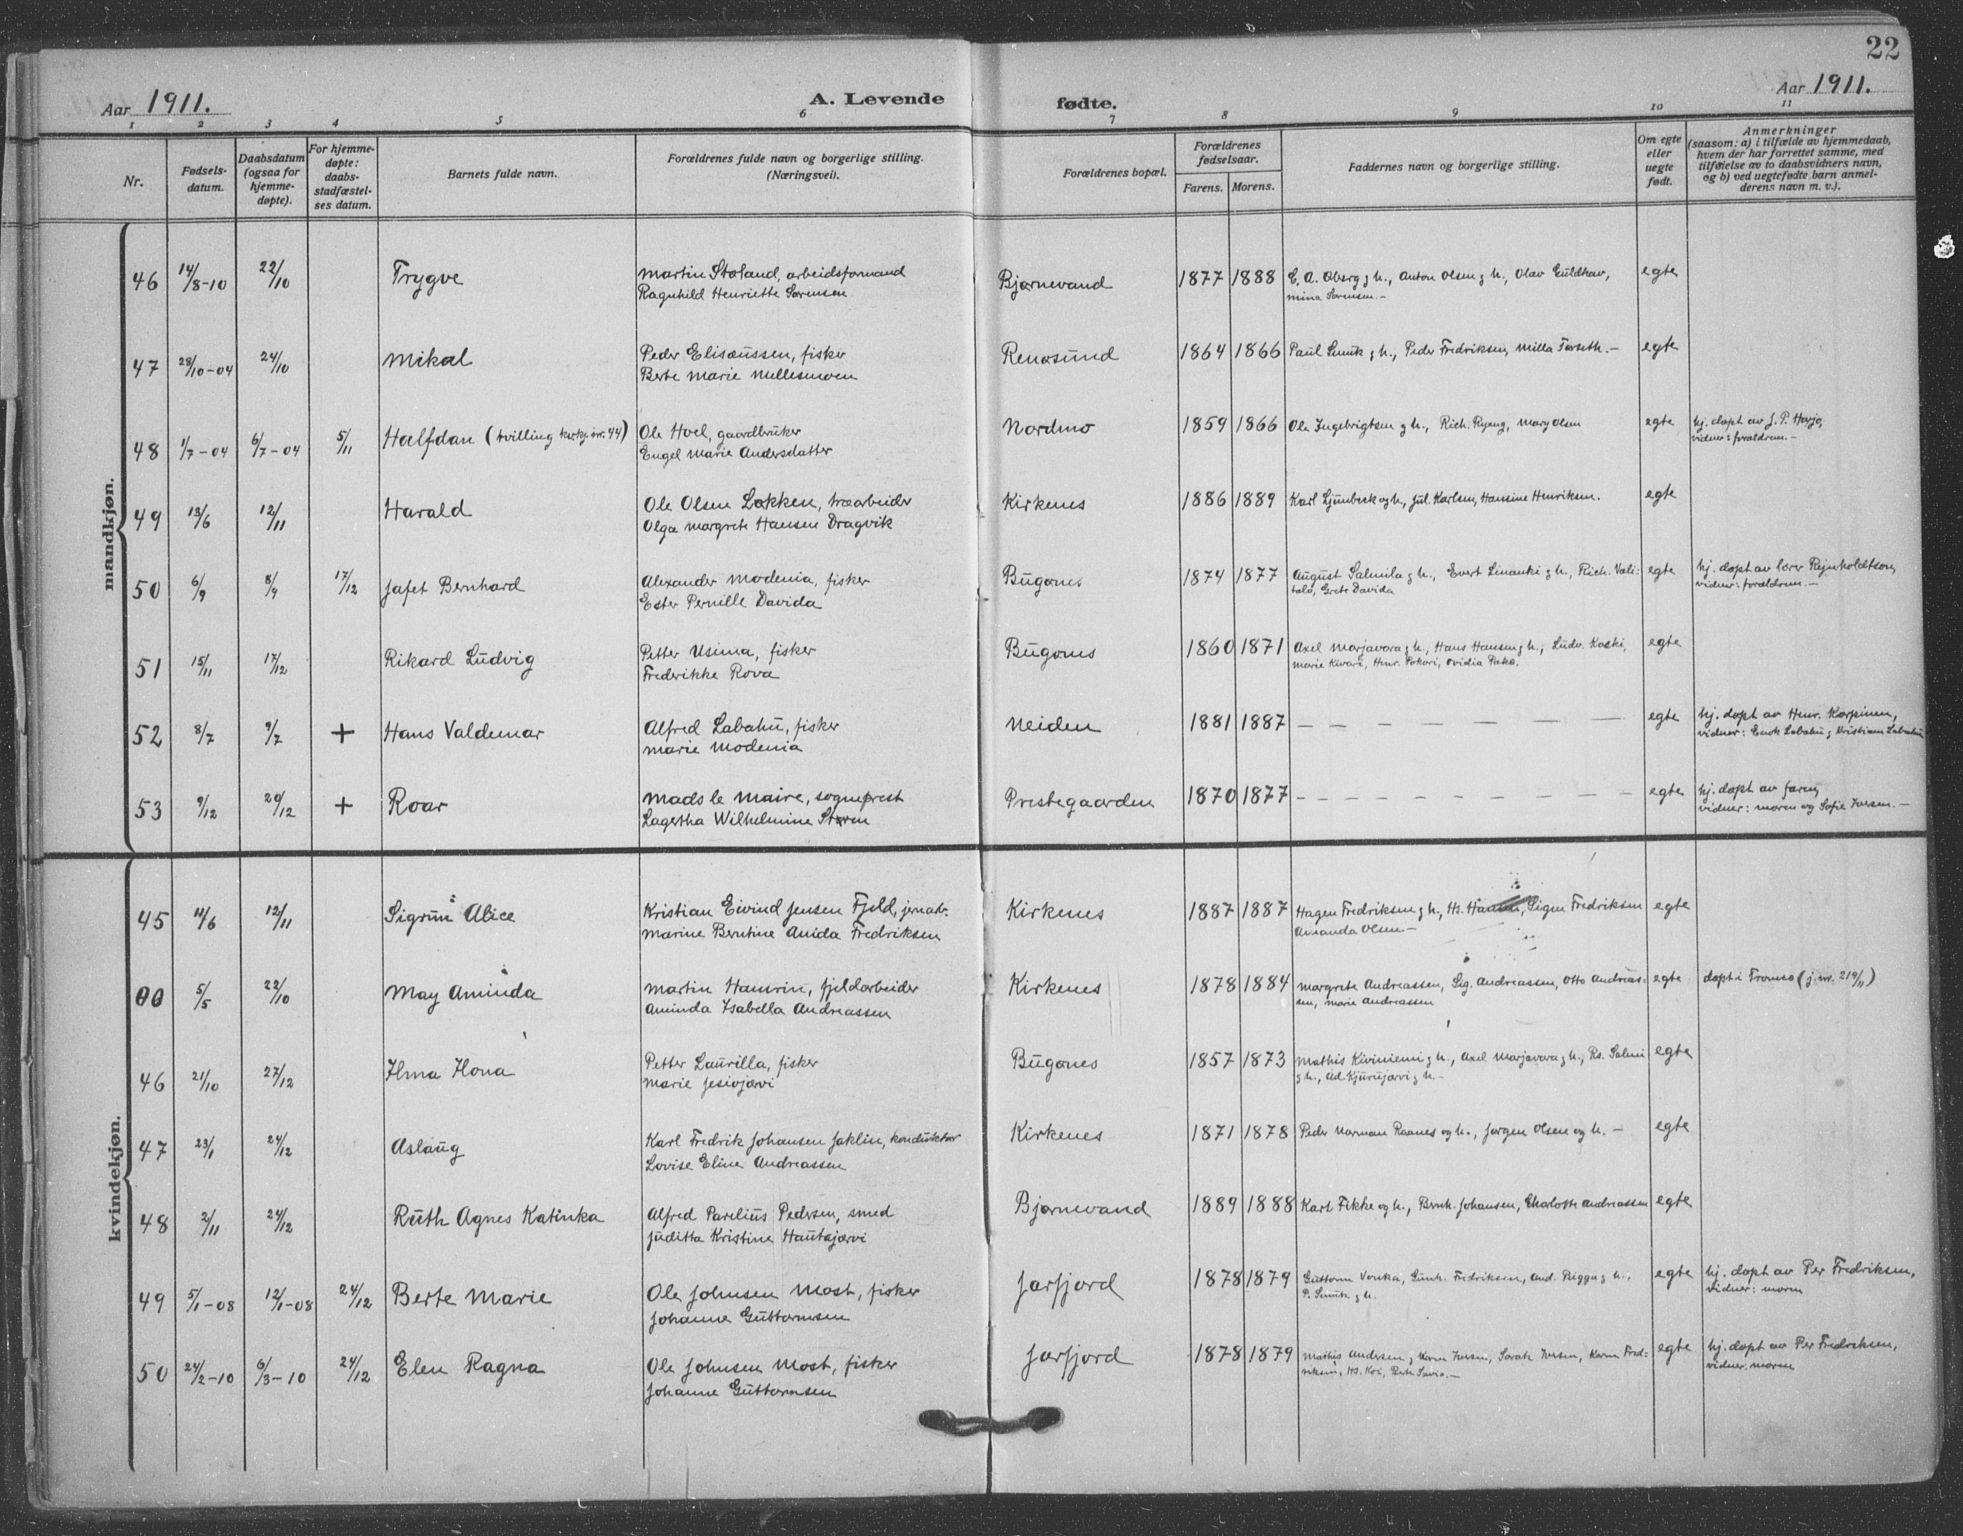 22
Aar 1911.
A. Levende
fødte.
Aar 1911.
1 2 3 4 5 6 7 8 9 10 11
Nr.
Fødsels-
datum.
Daabsdatum
(ogsaa for
hjemme-
døpte).
For hjemme-
døpte:
daabs-
stadfæstel-
ses datum.
Barnets fulde navn.
Forældrenes fulde navn og borgerlige stilling.
(Næringsvei).
Forældrenes bopæl.
Forældrenes
fødselsaar.
Farens. Morens.
Faddernes navn og borgerlige stilling.
Om egte
eller
uegte
født.
Anmerkninger
(saasom: a) i tilfælde av hjemmedaab,
hvem der har forrettet samme, med
tilføielse av to daabsvidners navn,
og b) ved uegtefødte barn anmel-
derens navn m. v.).
mandkjøn.
46 14/8-10 22/10 Trygve Martin Støland, arbeidsformand Bjørnevand 1877 1888 E. A. Øberg g h., Anton Olsen g h., Olav Guldhav, egte
Ragnhild Henriette Sørensen mina Sørensen.-
47 28/10-04 24/10 Mikal Peder Elisæussen, fisker Renøsund 1864 1866 Paul Smuk g h., Peder Fredriksen, Milla Forseth.- egte
Berte Marie Mellesmoen
48 1/7-04 6/7-04 5/11 Halfdan (tvilling nr. 44) Ole Hoel, gaardbruker Nordmo 1859 1866 Ole Ingebrigtsen g h., Rich. Ryeng, Mary Olsen egte hj. døpt av J. P.
Engel Marie Andersdatter vidner: forældrene.-
49 13/6 12/11 Harald Ole Olsen Løkken, træarbeider Kirkenes 1886 1889 Karl Ljunbeck og h., Jul. Karlsen, Hansine Henriksen. egte
Olga Margrete Hansen Dragvik
50 6/9 8/9 17/12 Jafet Bernhard Alexander Modenia, fisker Bugønes 1874 1877 August Salmila g h., Evert Linanki g h., Rich. Väli- egte hj. døpt av lærer Reinholdtsen,
Ester Pernille Davida talo, Grete Davida vidner: forældrene.-
51 15/11 17/12 Rikard Ludvig Petter Usima, fisker Bugønes 1860 1871 Axel Marjavara g h., Hans Hansen g h., Ludv. Koski, egte
Frederikke Rova Marie Kivari, Henr. Pokori,
52 8/7 9/7 + Hans Valdemar Alfred Labahu, fisker Neiden 1881 1887 – – – – – – egte hj. døpt av Henr. Karpinen,
Marie Modenia vidner: Enok Labahu g Kristian Labahu
53 9/12 20/12 + Roar Mads le Maire, sogneprest Prestegaarden 1870 1877 – – – – – – – – – egte hj. døpt av faren,
Lagertha Wilhelmine Støren vidner: moren og Sofie Iversen.-
kvindekjøn.
45 11/6 12/11 Sigrun Alice Kristian Eivind Jensen Fjeld, jernarb. Kirkenes 1887 1887 Hagen Fredriksen g h., Hs. Hansen, Sigen Fredriksen egte
Marine Berntine Anida Fredriksen Amanda Olsen -
00 5/5 22/10 May Aminda Martin Hamrin, fjeldarbeider Kirkenes 1878 1884 Margrete Andreassen, Sig. Andreassen, Otto Andreas- egte døpt i Tromsø (j. nr. 219/11)
Aminda Isabella Andreassen sen, Marie Andreassen
46 21/10 27/12 Ilma Ilona Petter Laurilla, fisker Bugønes 1857 1873 Mathis Kiviniemi g h., Axel Marjavara g h., Rs. Salmi egte
Marie Jesiojærvi g h., Ad. Kjurujærvi g h.-
47 23/1 24/12 Aslaug Karl Fredrik Johansen Jaklin, konduktør Kirkenes 1871 1878 Peder Norman Raanes og h., Jørgen Olsen og h. - egte
Lovise Eline Andreassen
48 2/11 24/12 Ruth Agnes Katinka Alfred Parelius Pedersen, smed Bjørnevand 1889 1888 Karl Fikke og h., Bernh. Johansen, Charlotte Andreassen egte
Juditta Kristine Hautajærvi
49 5/1-08 12/1-08 24/12 Berte Marie Ole Johnsen Most, fisker Jarfjord 1878 1879 Guttorm Vonka, Gunh. Fredriksen, And. Pigga g h., egte hj. døpt av Per Fredriksen,
Johanne Guttormsen P. Smuk g h. vidner: moren
50 24/2-10 6/3-10 24/12 Elen Ragna Ole Johnsen Most, fisker Jarfjord 1878 1879 Mathis Andersen g Iversen, Sarah Iversen, Karen Fred- egte hj. døpt av Per Fredriksen,
Johanne Guttormsen riksen, Hs. vidner: moren